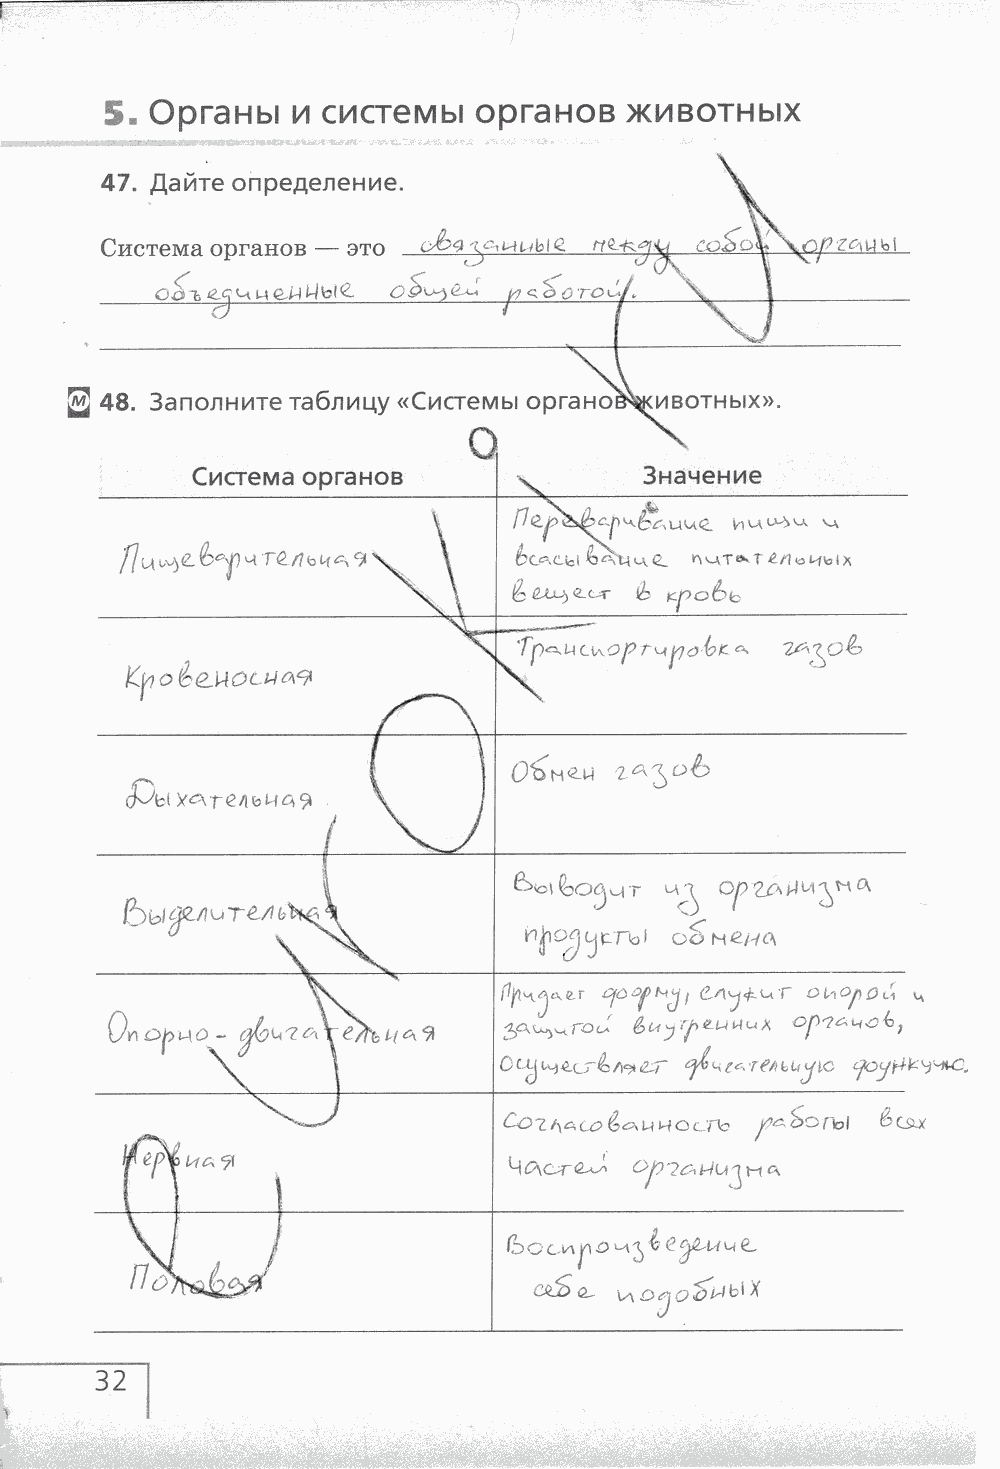 5. Органы и системы органов животных
47. Дайте определение.
Система органов — это связанные между собой органы
объединенные общей работой.
М 48. Заполните таблицу «Системы органов животных».
Система органов
Значение
Пищеварительная
Переваривание пищи и
всасывание питательных
вещест в кровь
Кровеносная
Транспортировка газов
Дыхательная
Обмен газов
Выделительная
Выводит из организма
продукты обмена
Опорно-двигательная
Придает форму, служит опорой и
защитой внутренних органов,
осуществляет двигательную функцию.
Нервная
Согласованность работы всех
частей организма
Половая
Воспроизведение
себе подобных
32